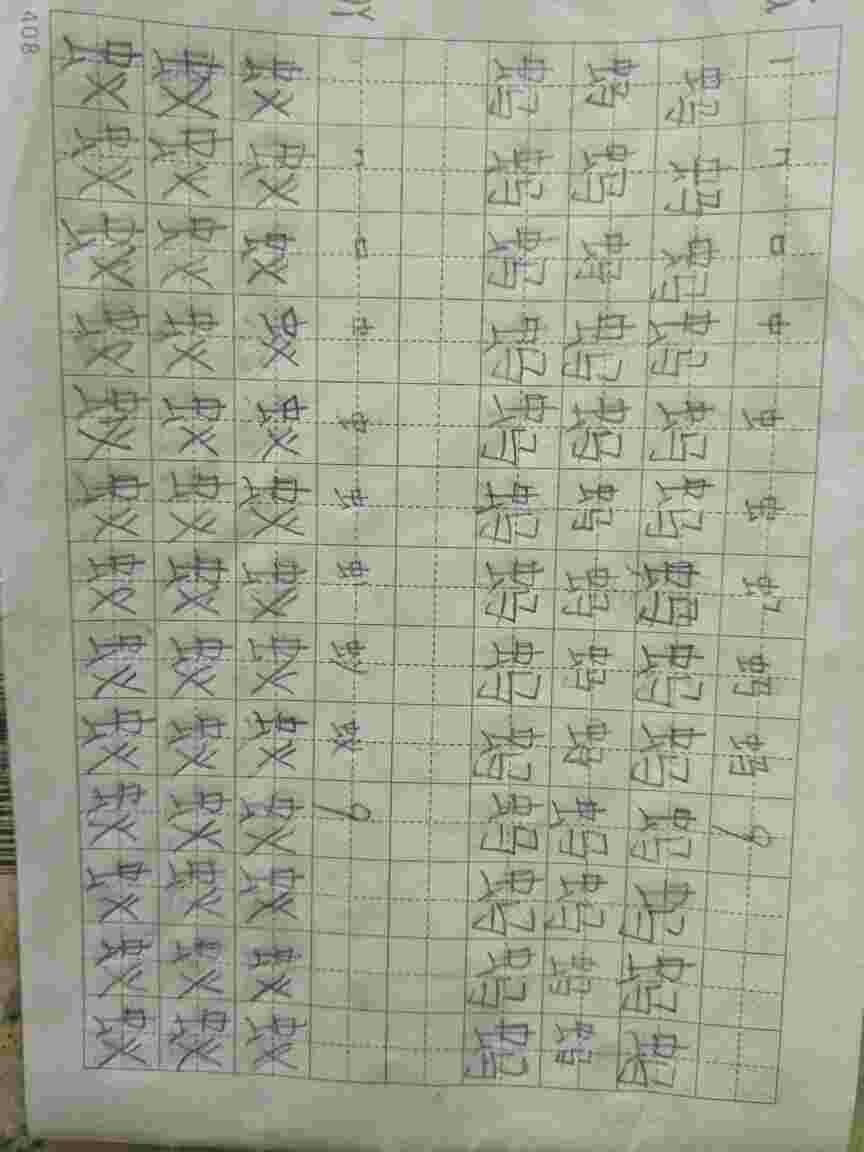 口 中 虫 蚂 9
蚂 蚂 蚂 蚂 蚂 蚂 蚂 蚂 蚂 蚂 蚂 蚂 蚂
蚂 蚂 蚂 蚂 蚂 蚂 蚂 蚂 蚂 蚂 蚂 蚂 蚂
蚂 蚂 蚂 蚂 蚂 蚂 蚂 蚂 蚂 蚂 蚂 蚂 蚂
口 中 虫 蚁 9
蚁 蚁 蚁 蚁 蚁 蚁 蚁 蚁 蚁 蚁 蚁 蚁 蚁
蚁 蚁 蚁 蚁 蚁 蚁 蚁 蚁 蚁 蚁 蚁 蚁 蚁
蚁 蚁 蚁 蚁 蚁 蚁 蚁 蚁 蚁 蚁 蚁 蚁 蚁
408